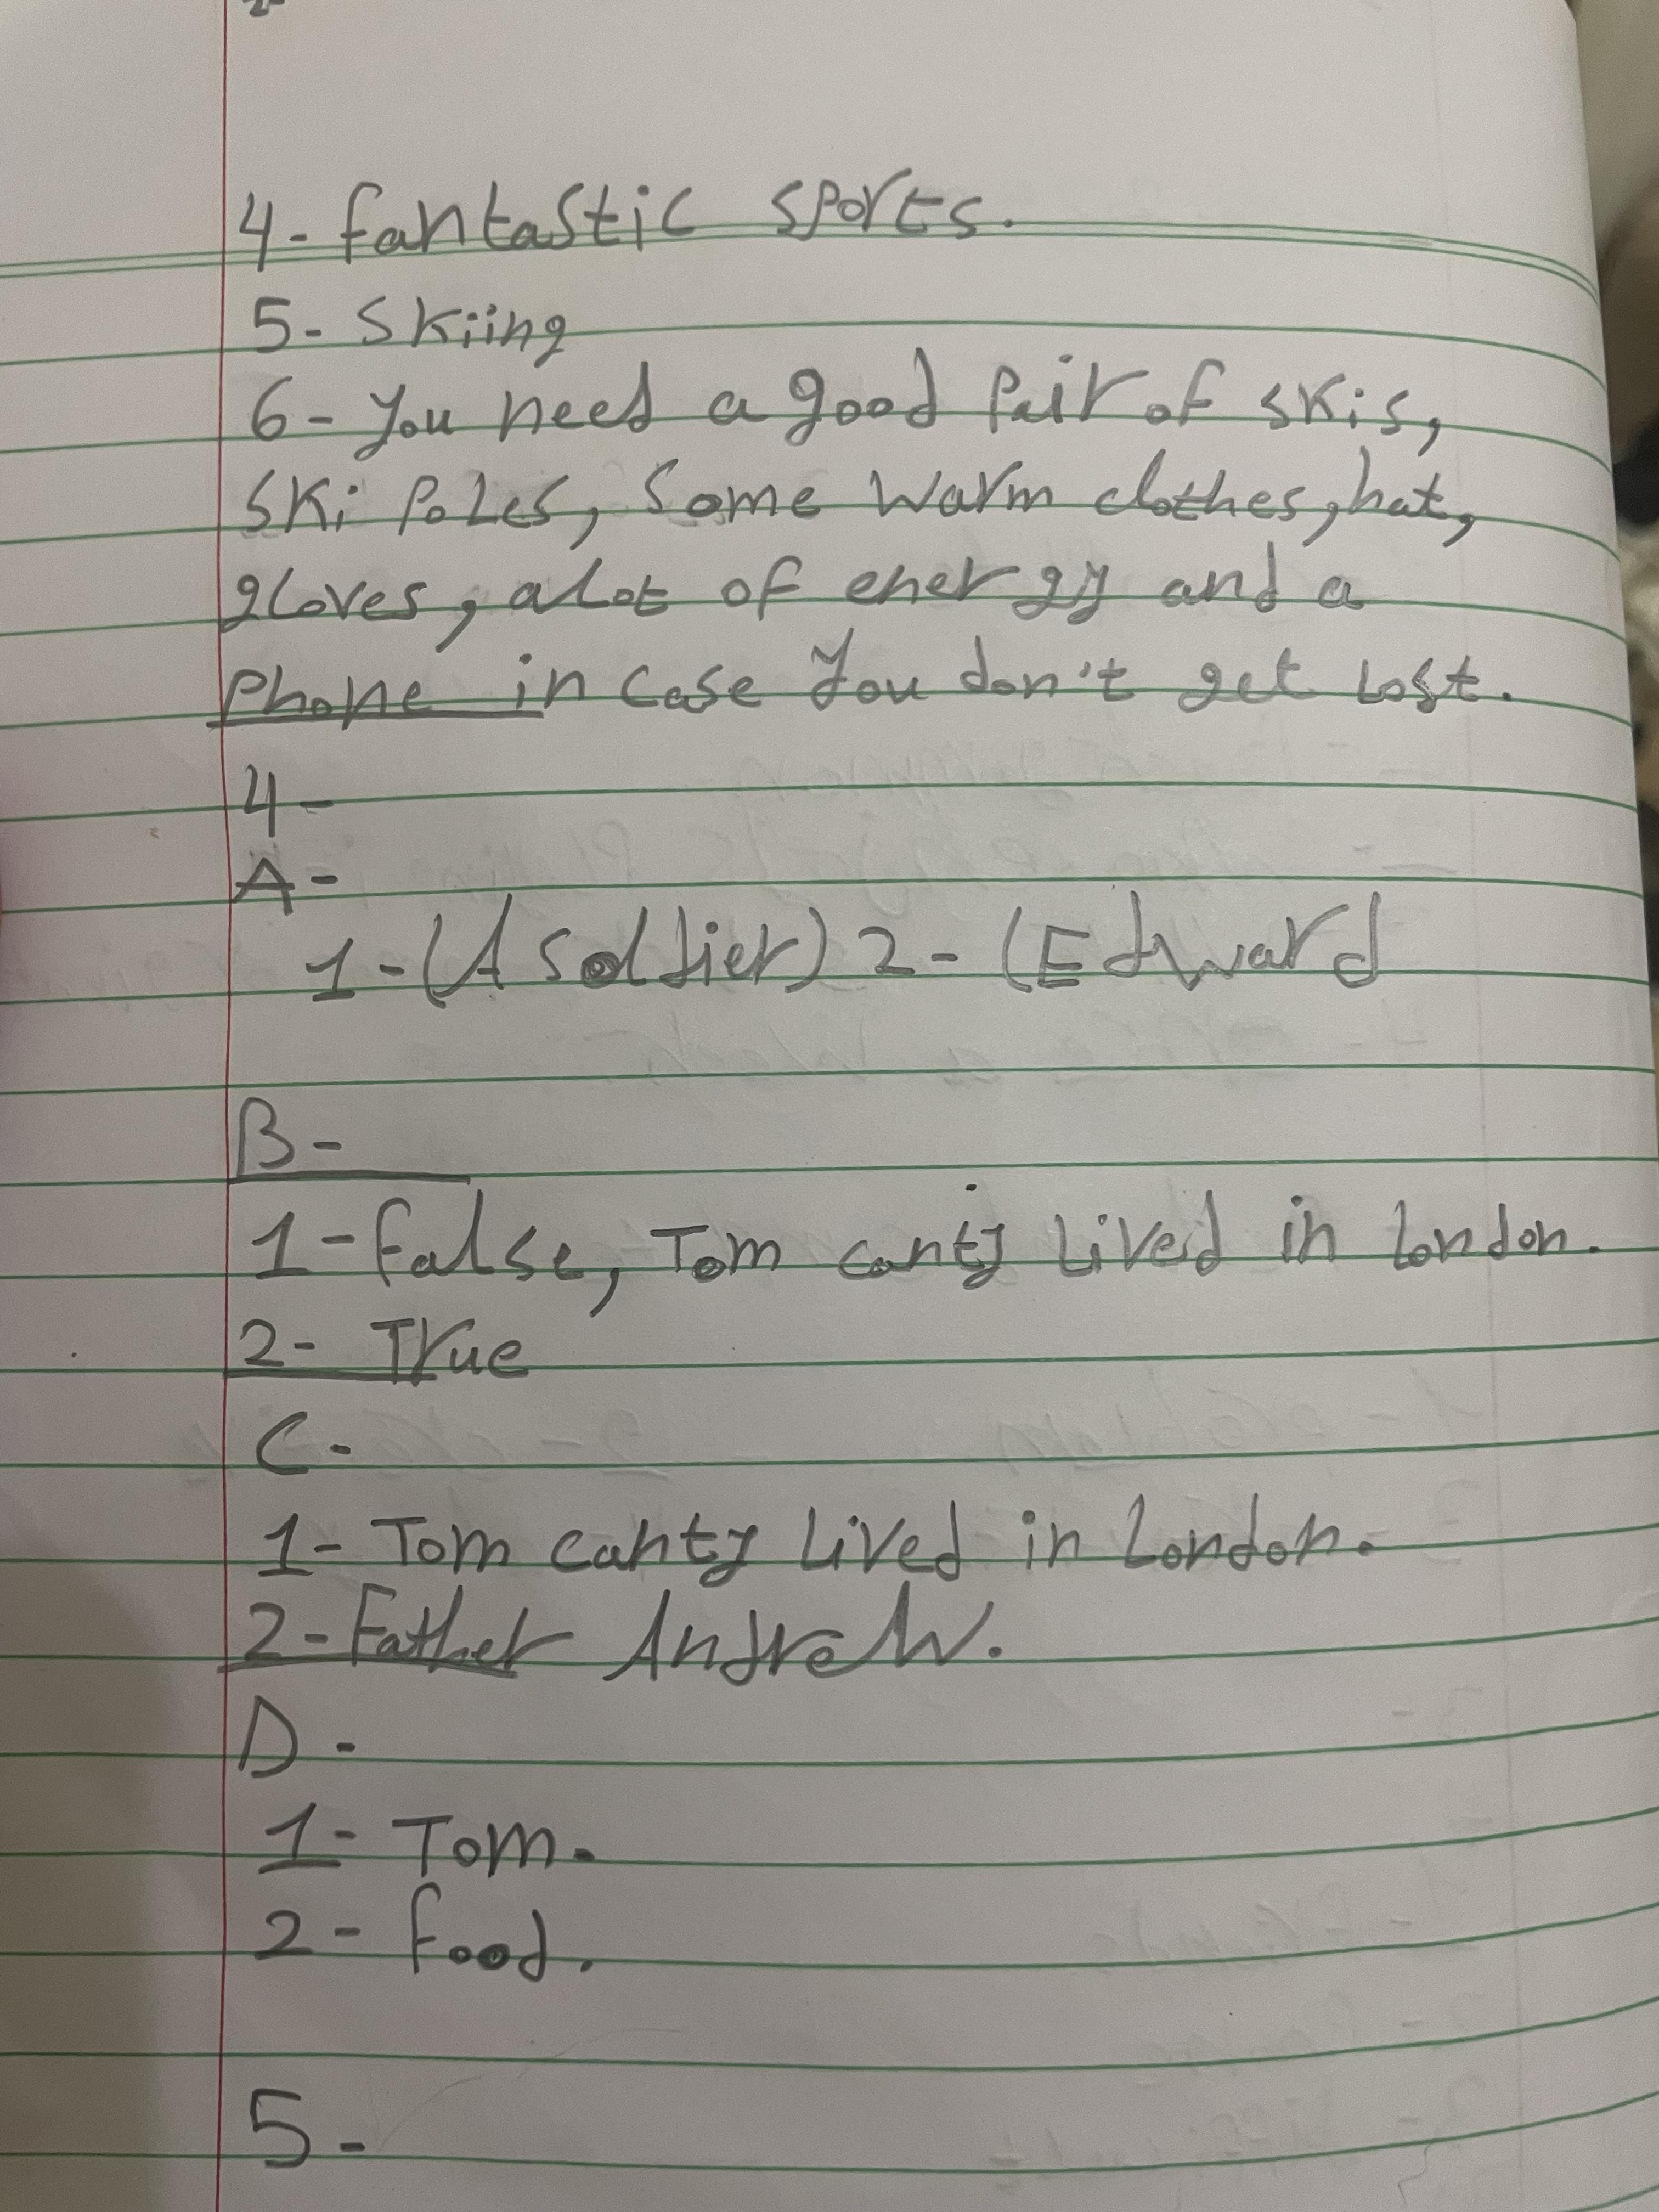 4- fantastic sports.
5- Skiing
6- You need a good pair of skis,
ski poles, some warm clothes, hat,
gloves, alot of energy and a
phone in case you don't get lost.
4-
A-
1-(A soldier) 2- (Edward
B-
1- false, Tom canty lived in london.
2- True
C-
1- Tom canty lived in London.
2- Father Andrew.
D-
1- Tom.
2- food.
5-